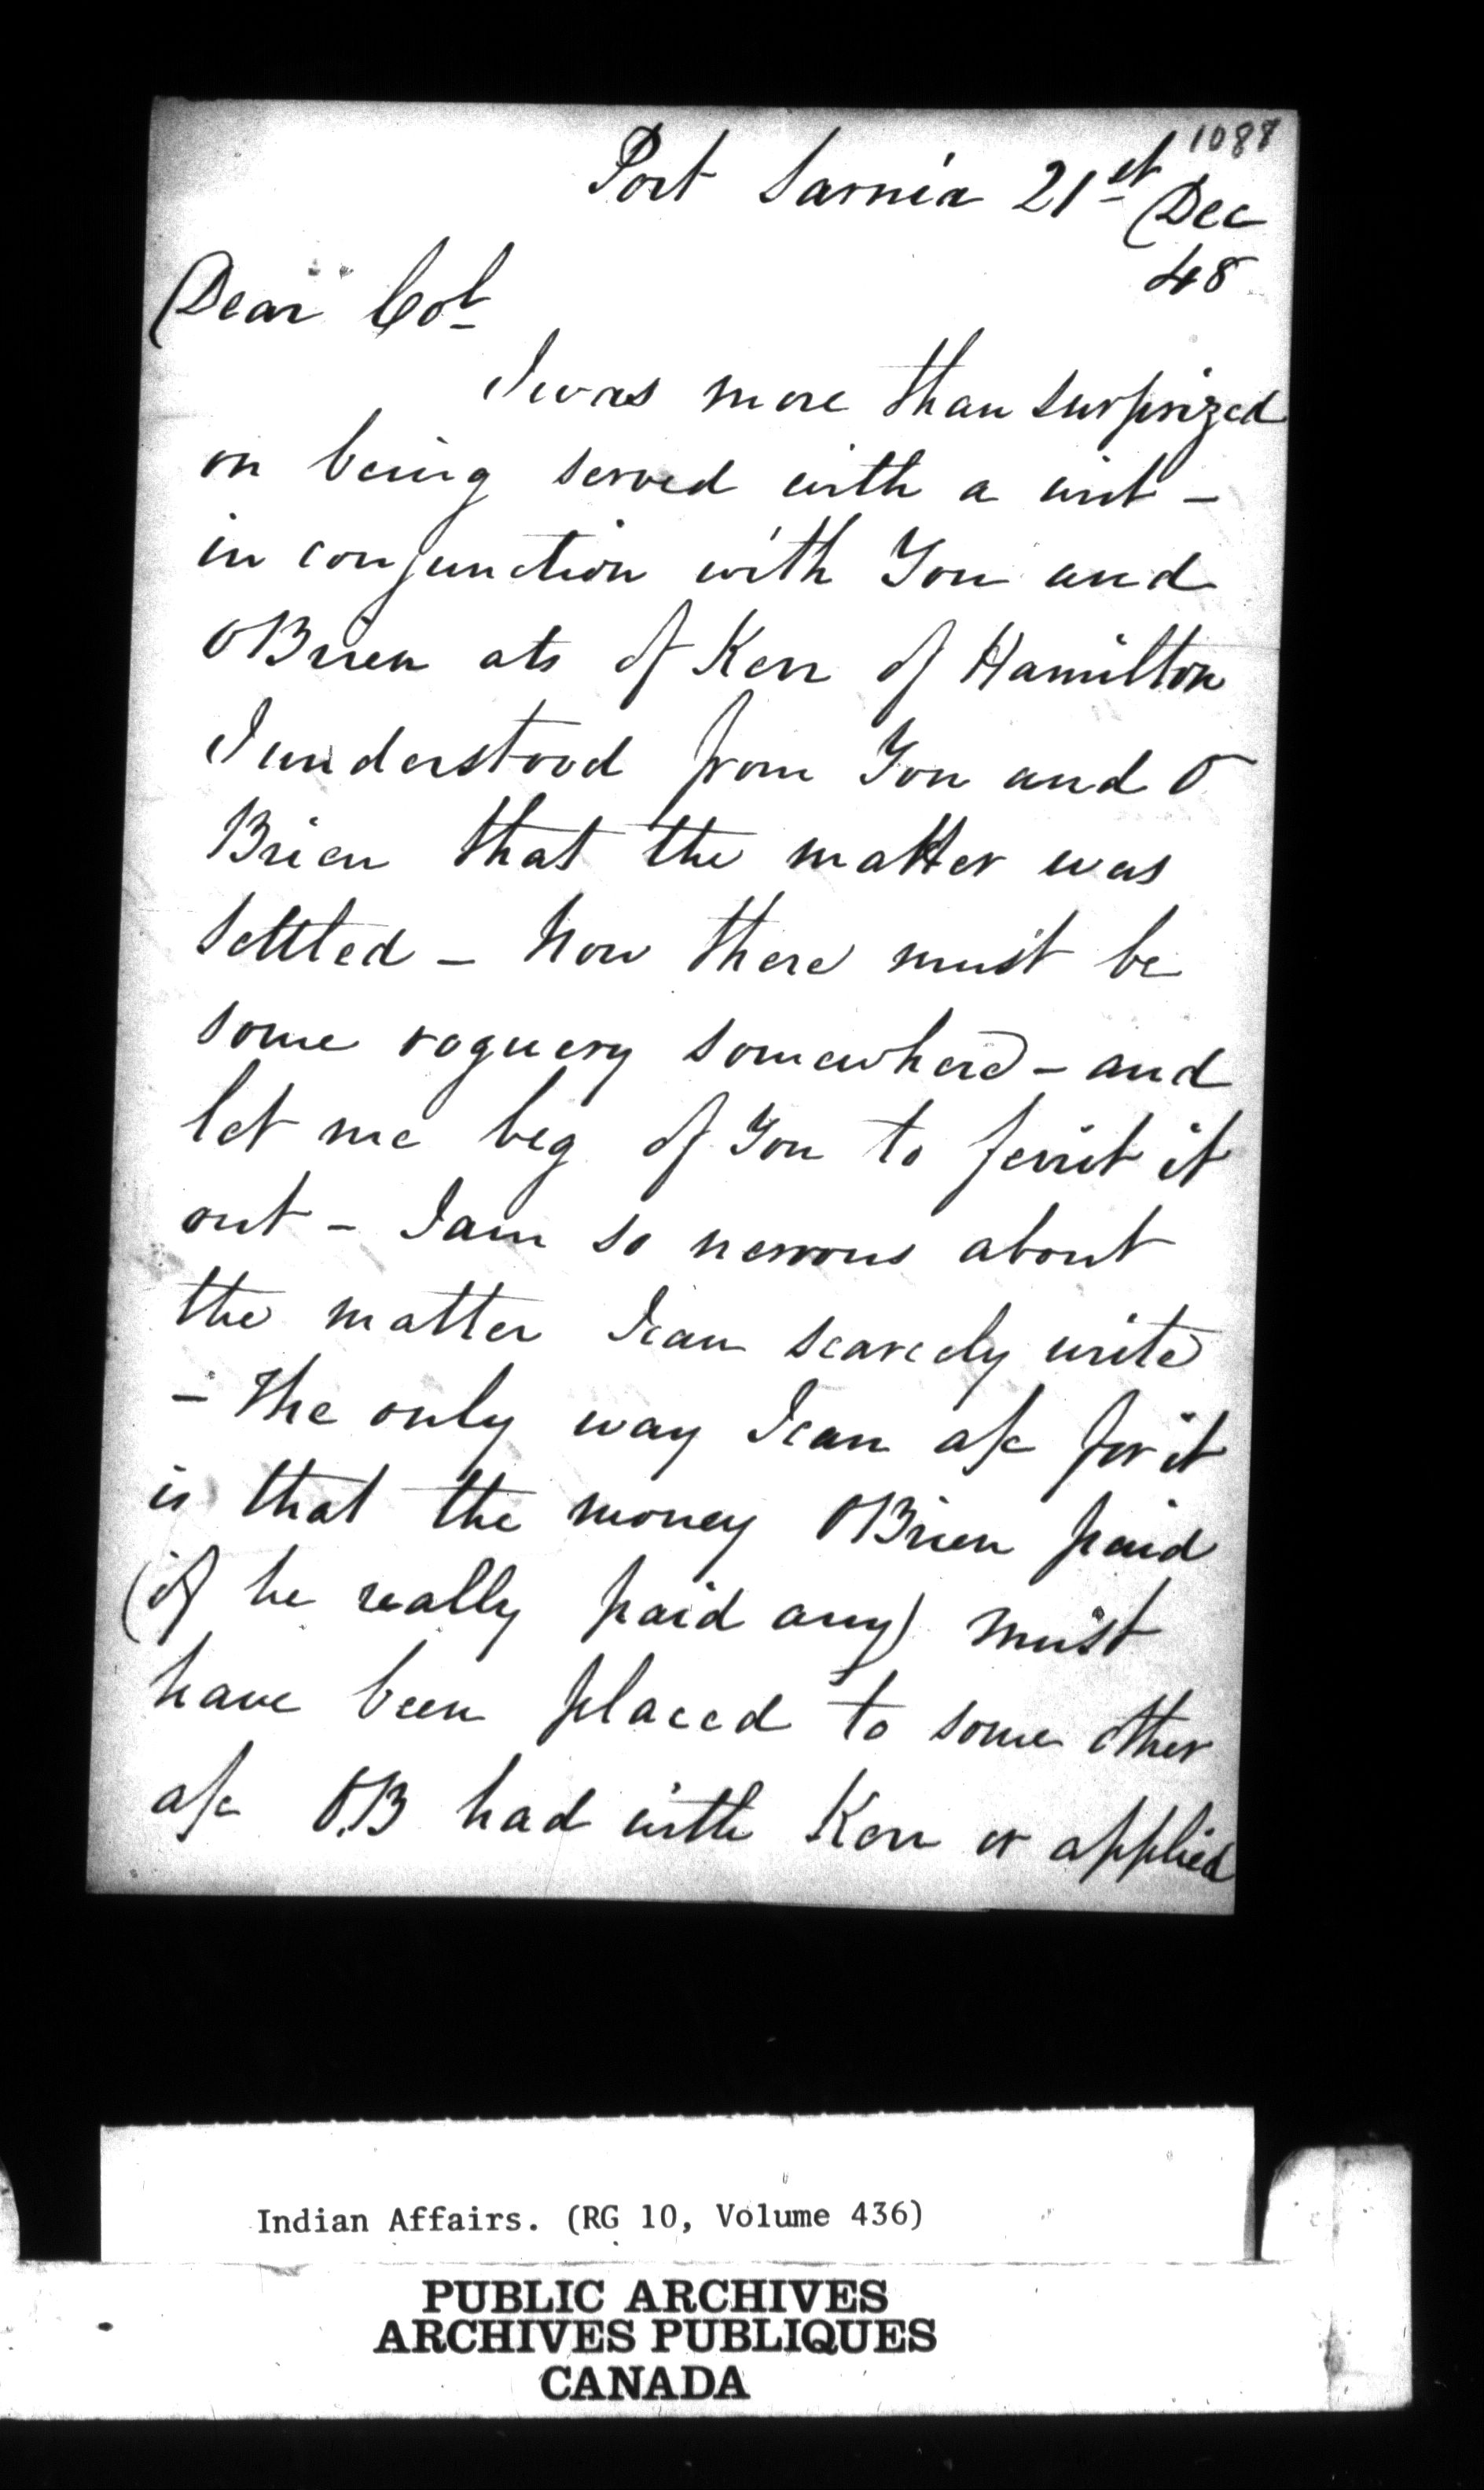 1087
Port Sarnia 21st Dec
48
Dear Col
I was more than surprized
on being served with a writ -
in conjunction with You and
OBrien ats of Kerr of Hamilton
I understood from You and O
Brien that the matter was
settled - Now there must be
some roguery somewhere - and
let me beg of You to ferrit it
out - I am so nervous about
the matter I can scarcely write
- The only way I can a/c for it
is that the money OBrien paid
(if he really paid any) must
have been placed to some other
a/c O.B had with Kerr or applied
Indian Affairs. (RG 10, Volume 436)
PUBLIC ARCHIVES
ARCHIVES PUBLIQUES
CANADA